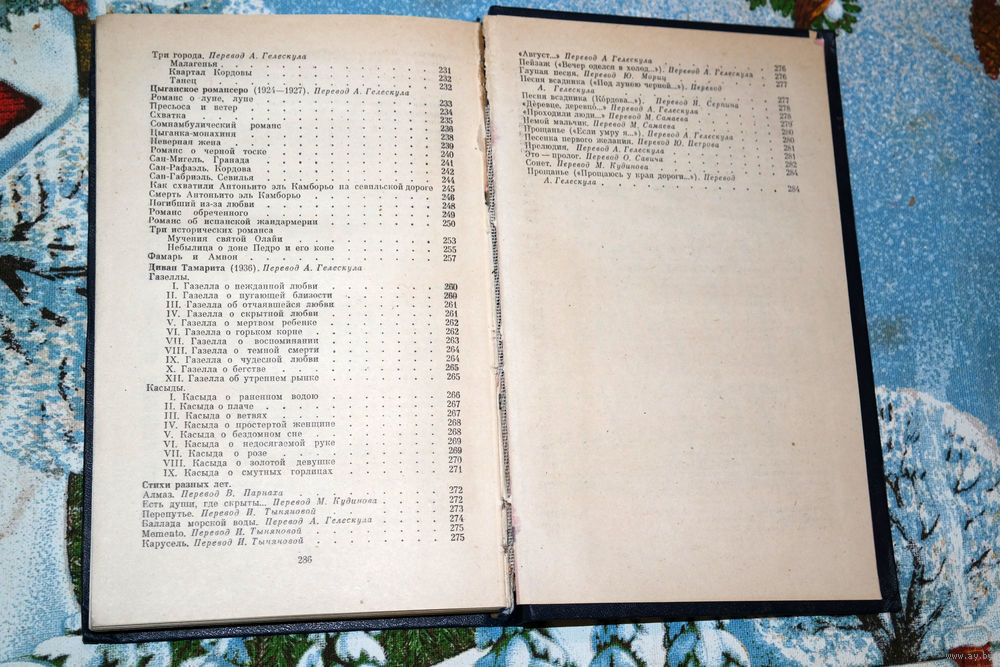 Три города. Перевод А. Гелескула
Малагенья . . . . . . . . . . 231
Квартал Кордовы . . . . . . . . 232
Танец . . . . . . . . . . . 232
Цыганское романсеро (1924—1927). Перевод А. Гелескула
Романс о луне, луне . . . . . . . . 233
Пресьоса и ветер . . . . . . . . . 234
Схватка . . . . . . . . . . . 235
Сомнамбулический романс . . . . . . . 236
Цыганка-монахиня . . . . . . . . . 238
Неверная жена . . . . . . . . . . 239
Романс о черной тоске . . . . . . . . 240
Сан-Мигель. Гранада . . . . . . . . 241
Сан-Рафаэль. Кордова . . . . . . . . 242
Сан-Габриэль. Севилья . . . . . . . . 244
Как схватили Антоньито эль Камборьо на севильской дороге 245
Смерть Антоньито эль Камборьо . . . . . . 246
Погибший из-за любви . . . . . . . . 248
Романс обреченного . . . . . . . . 249
Романс об испанской жандармерии . . . . . 250
Три исторических романса
Мучения святой Олайи . . . . . . . 253
Небылица о доне Педро и его коне . . . . 255
Фамарь и Амнон . . . . . . . . . 257
Диван Тамарита (1936). Перевод А. Гелескула
Газеллы.
I. Газелла о нежданной любви . . . . . 260
II. Газелла о пугающей близости . . . . 260
III. Газелла об отчаявшейся любви . . . . 261
IV. Газелла о скрытной любви . . . . . 261
V. Газелла о мертвом ребенке . . . . . 262
VI. Газелла о горьком корне . . . . . 262
VII. Газелла о воспоминании . . . . . 263
VIII. Газелла о темной смерти . . . . . 264
IX. Газелла о чудесной любви . . . . . 264
X. Газелла о бегстве . . . . . . . 265
XII. Газелла об утреннем рынке . . . . . 265
Касыды.
I. Касыда о раненном водою . . . . . 266
II. Касыда о плаче . . . . . . . . 267
III. Касыда о ветвях . . . . . . . 267
IV. Касыда о простертой женщине . . . . 268
V. Касыда о бездомном сне . . . . . . 268
VI. Касыда о недосягаемой руке . . . . 269
VII. Касыда о розе . . . . . . . . 269
VIII. Касыда о золотой девушке . . . . . 270
IX. Касыда о смутных горлицах . . . . . 271
Стихи разных лет.
Алмаз. Перевод В. Парнаха . . . . . . . 272
Есть души, где скрыты... Перевод М. Кудинова . . . 272
Перепутье. Перевод И. Тыняновой . . . . . 273
Баллада морской воды. Перевод А. Гелескула . . . 274
Memento. Перевод И. Тыняновой . . . . . . 275
Карусель. Перевод И. Тыняновой . . . . . . 275
286
«Август...» Перевод А Гелескула
Пейзаж («Вечер оделся в холод...»). Перевод А. Гелескула . 276
Глупая песня. Перевод Ю. Мориц . . . . . 276
Песня всадника («Под луною черной...»). Перевод 277
А. Гелескула
Песня всадника (Кордова...»). Перевод Я. Серпина . 277
«Деревце, деревцо...» Перевод А. Гелескула . . . 278
«Проходили люди...» Перевод М. Самаева . . . 278
Немой мальчик. Перевод М. Самаева . . . . 279
Прощанье («Если умру я...»). Перевод А. Гелескула . 280
Песенка первого желания. Перевод Ю. Петрова . . 280
Прелюдия. Перевод А. Гелескула . . . . . 281
Это — пролог. Перевод О. Савича . . . . . 281
Сонет. Перевод М. Кудинова . . . . . . 282
Прощанье («Прощаюсь у края дороги...»). Перевод 284
А. Гелескула . . . . . . . . . 284
www.ay.by